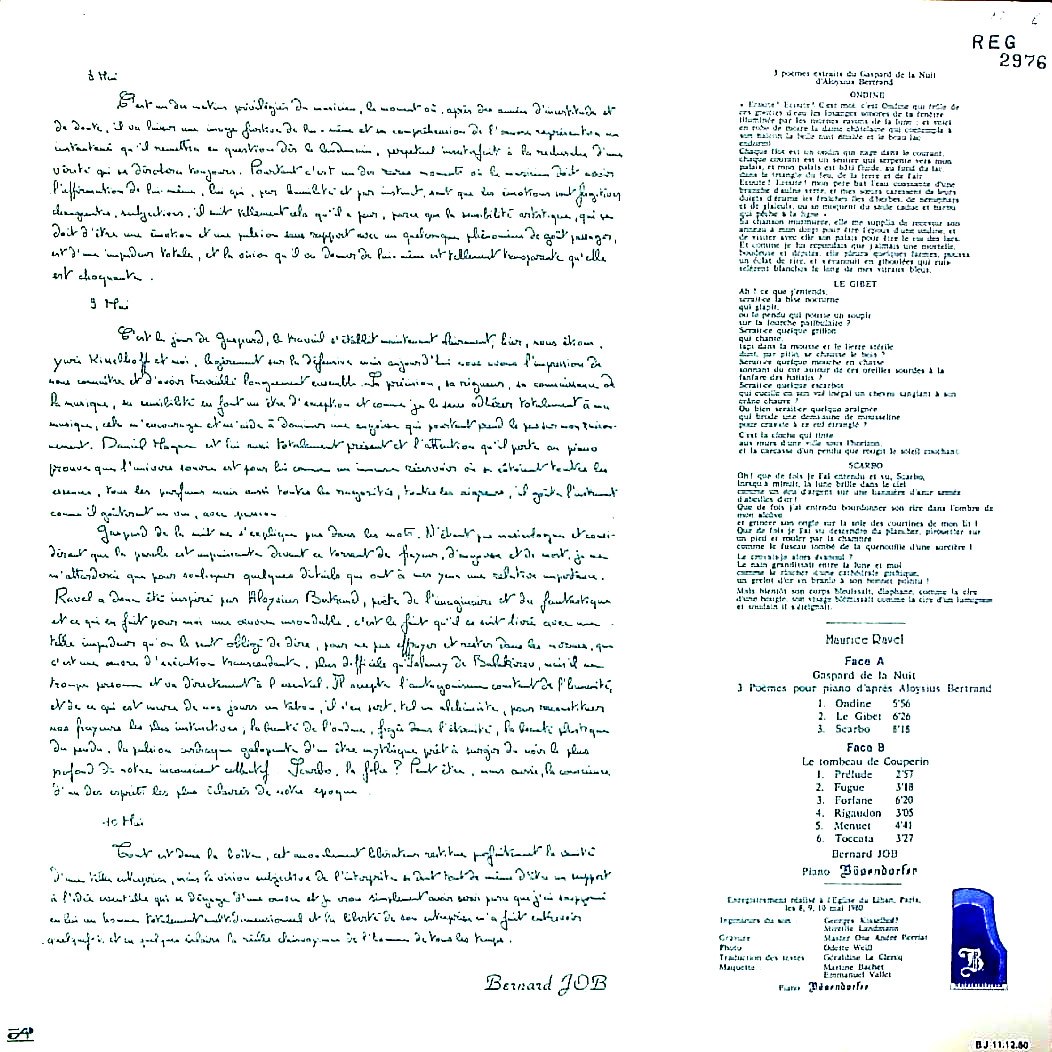 REG
2976
8 Mai
C'est un des métiers privilégiés du musicien, le moment où, après des années d'incertitude et
de doute, il va laisser une image furtive de lui-même et sa compréhension de l'œuvre représentation un
instantané qu'il remettra en question dès le lendemain, perpétuel insatisfait à la recherche d'une
vérité qui se dérobera toujours. Pourtant c'est un des rares moments où le musicien doit saisir
l'affirmation de lui-même, lui qui, par humilité et par instinct, sent que les émotions sont fugitives
changeantes, subjectives, il sait tellement cela qu'il a peur, parce que la sensibilité artistique, qui se
doit d'être une émotion et une pulsion sans rapport avec un quelconque phénomène de goût passager,
est d'une impudeur totale, et la vision qu'il va donner de lui-même est tellement transparente qu'elle
est choquante.
9 Mai
C'est le jour de Gaspard, le travail s'établit maintenant sûrement, hier, nous étions,
et moi, légèrement sur la défensive mais aujourd'hui nous avons l'impression de
nous connaître et d'avoir travaillé longuement ensemble. La précision, sa rigueur, sa connaissance de
la musique, sa sensibilité en font un être d'exception et comme je le sens adhérer totalement à ma
musique, cela m'encourage et m'aide à dominer une angoisse qui pourtant prend le pas sur mon raison-
nement. Daniel Magne est lui aussi totalement présent et l'attention qu'il porte au piano
prouve que l'univers sonore est pour lui comme un immense réservoir où se côtoient toutes les
essences, tous les parfums mais aussi toutes les rugosités, toutes les aigreurs, il goûte l'instrument
comme il goûterait un vin, avec passion.
Gaspard de la nuit ne s'explique pas dans les mots. N'étant pas musicologue et consi-
dérant que la parole est impuissante devant ce torrent de frayeur, d'angoisse et de mort, je ne
m'attarderai que pour souligner quelques détails qui ont à mes yeux une relative importance.
Ravel a donc été inspiré par Aloysius Bertrand, poète de l'imaginaire et du fantastique
et ce qui en fait pour moi une œuvre insondable, c'est le fait qu'il se soit livré avec une
telle impudeur qu'on le sent obligé de dire, pour ne pas effrayer et rester dans les normes, que
c'est une œuvre d'exécution transcendante, plus difficile qu'Islamey de Balakirev, mais il ne
trompe personne et va directement à l'essentiel. Il accepte l'antagonisme constant de l'humanité,
et de ce qui est encore de nos jours un tabou, il s'en sert, tel un alchimiste, pour reconstituer
nos frayeurs les plus instinctives, la beauté de l'ondine, figée dans l'éternité, la beauté plastique
du pendu, la pulsion cardiaque galopante d'un être mythique prêt à surgir du noir le plus
profond de notre inconscient collectif. Scarbo, la folie ? Peut être, mais aussi, la conscience
d'un des esprits les plus éclairés de notre époque.
10 Mai
Tout est dans la boîte, cet
d'une telle entreprise, mais la vision subjective de l'interprète se doit tout de même d'être un support
à l'idée essentielle qui se dégage d'une œuvre et je veux simplement avoir servi parce que j'ai
en lui un homme totalement multidimensionnel et la liberté de son entreprise m'a fait entrevoir
quelquefois, et en quelques éclairs la réelle clairvoyance de l'homme de tous les temps.
Bernard JOB
3 poèmes extraits du Gaspard de la Nuit
d'Aloysius Bertrand
ONDINE
« Ecoute ! Ecoute ! C'est moi, c'est Ondine qui frôle de
ces gouttes d'eau les losanges sonores de ta fenêtre
illuminée par les mornes rayons de la lune ; et voici
en robe de moire la dame châtelaine qui contemple à
son balcon la belle nuit étoilée et le beau lac
endormi.
Chaque flot est un ondin qui nage dans le courant,
chaque courant est un sentier qui serpente vers mon
palais, et mon palais est bâti fluide, au fond du lac,
dans le triangle du feu, de la terre et de l'air
Ecoute ! Ecoute ! mon père bat l'eau coassante d'une
branche d'aulne verte, et mes sœurs caressent de leurs
doigts d'écume les fraîches îles d'herbes, de nénuphars
et de glaïeuls, ou se moquent du saule caduc et barbu
qui pêche à la ligne »
Sa chanson murmurée, elle me supplia de recevoir son
anneau à mon doigt pour être l'époux d'une ondine, et
de visiter avec elle son palais pour être le roi des lacs.
Et comme je lui répondais que j'aimais une mortelle,
boudeuse et dépitée, elle pleura quelques larmes, poussa
un éclat de rire, et s'évanouit en giboulées qui ruis-
selèrent blanches le long de mes vitraux bleus.
LE GIBET
Ah ! ce que j'entends,
serait-ce la bise nocturne
qui glapit,
ou le pendu qui pousse un soupir
sur la fourche patibulaire ?
Serait-ce quelque grillon
qui chante,
tapi dans la mousse et le lierre stérile
dont, par pitié, se chausse le bois ?
Serait-ce quelque mouche en chasse
sonnant du cor autour de ces oreilles sourdes à la
fanfare des hallalis ?
Serait-ce quelque escarbot
qui cueille en son vol inégal un cheveu sanglant à son
crâne chauve ?
Ou bien serait-ce quelque araignée
qui brode une demi-aune de mousseline
pour cravate à ce col étranglé ?
C'est la cloche qui tinte
aux murs d'une ville sous l'horizon,
et la carcasse d'un pendu que rougit le soleil couchant.
SCARBO
Oh ! que de fois je l'ai entendu et vu, Scarbo,
lorsqu'à minuit, la lune brille dans le ciel
comme un écu d'argent sur une bannière d'azur semée
d'abeilles d'or !
Que de fois j'ai entendu bourdonner son rire dans l'ombre de
mon alcôve
et grincer son ongle sur la soie des courtines de mon lit !
Que de fois je l'ai vu descendre du plancher, pirouetter sur
un pied et rouler par la chambre
comme le fuseau tombé de la quenouille d'une sorcière !
Le croyais-je alors évanoui ?
Le nain grandissait entre la lune et moi
comme le clocher d'une cathédrale gothique,
un grelot d'or en branle à son bonnet pointu !
Mais bientôt son corps bleuissait, diaphane, comme la cire
d'une bougie, son visage blêmissait comme la cire d'un lumignon
et soudain il s'éteignait.
Maurice Ravel
Face A
Gaspard de la Nuit
3 Poèmes pour piano d'après Aloysius Bertrand
1. Ondine 5'56
2. Le Gibet 6'26
3. Scarbo 8'15
Face B
Le tombeau de Couperin
1. Prélude 2'57
2. Fugue 3'18
3. Forlane 6'20
4. Rigaudon 3'05
5. Menuet 4'41
6. Toccata 3'27
Bernard JOB
Piano Bösendorfer
Enregistrement réalisé à l'Eglise du Liban, Paris,
les 8, 9, 10 mai 1980
Ingénieurs du son Georges Kisselhoff
Mireille Landmann
Gravure Master One André Perriat
Photo Odette Weill
Traduction des textes Géraldine Le Clercq
Maquette Martine Bachet
Emmanuel Vallet
Piano Bösendorfer
B
BJ 11.12.80